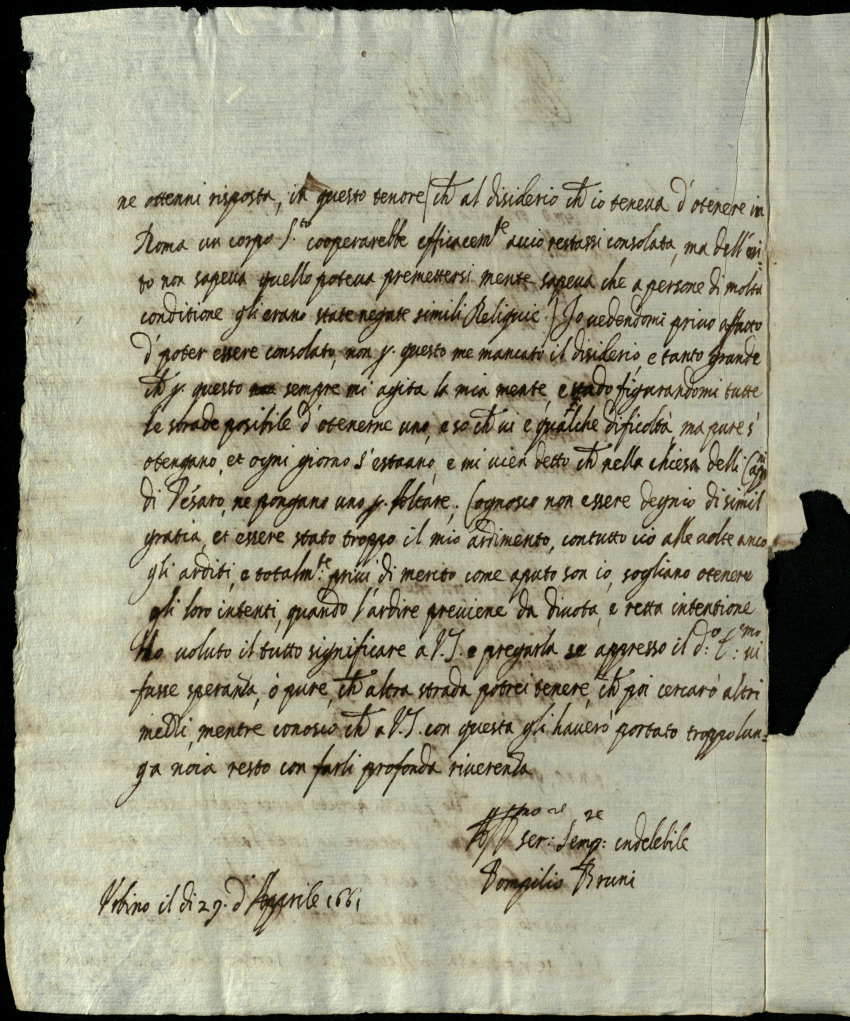 ne ottenni risposta, in questo tenore (ch̄ al disiderio ch̄ io teneva d'otenere in
Roma un corpo S.to cooperarebbe efficacem.te acciò restassi consolata, ma dell'esi-
to non sapeva quello poteva premettersi mente sapeva che a persone di molta
conditione gli erano state negate simili Reliquie.) Io vedendomi privo affatto
d'poter essere consolato, non p. questo me mancato il disiderio, e tanto grande
ch̄ p. questo sempre mi agita la mia mente, e vado figurandomi tutte
le strade posibile d'otenerne uno, e so ch̄ vi è qualche dificoltà, ma pure s'
otengano, et ogni giorno s'estrano, e mi vien detto ch̄ nella chiesa delli Capp.ni
di Pésaro, ne pongano uno p. Altare, Cognosco non essere degnio di simil
gratia, et essere stato troppo il mio ardimento, contutto ciò alle volte anco
gli arditi, e totalm.te privi di merito come aputo son io, sogliano otenere
gli loro intenti, quando l'ardire previene da divota, e retta intentione
Ho voluto il tutto significare a V.S. e pregarla se appresso il d.o E.mo vi
fusse speranza, ò pure, ch̄ altra strada potrei tenere, ch̄ poi cercarò altri
mezzi, mentre conosco ch̄ a V.S. con questa gli haverò portato troppo lun-
ga noia resto con farli profonda riverenza
ser: Semp:re endelebile
Pompilio Bruni
Urbino il di 29. d'Apprile 1661